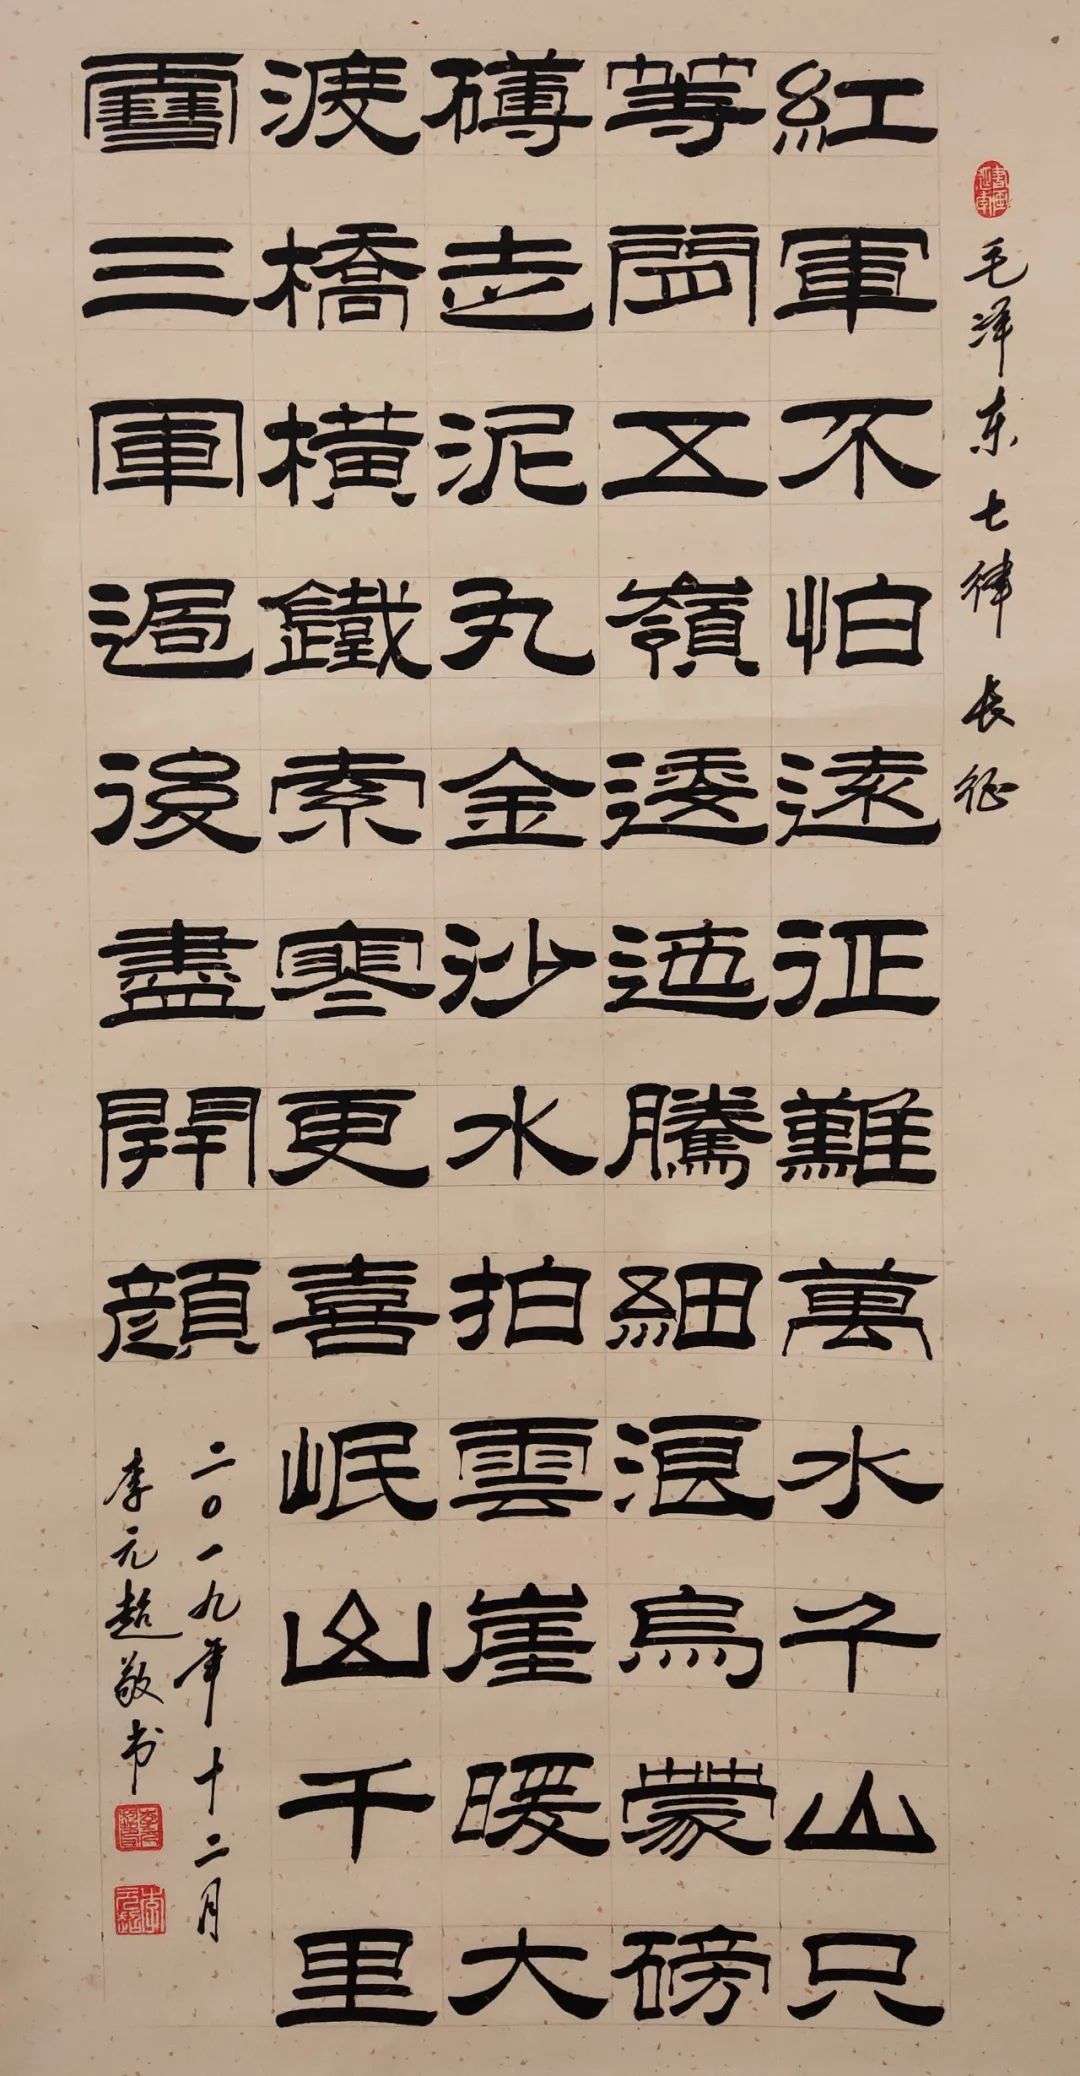 毛泽东七律长征
紅軍不怕遠征難萬水千山只
等閒五嶺逶迤騰細浪烏蒙磅
礴走泥丸金沙水拍雲崖暖大
渡橋橫鐵索寒更喜岷山千里
雪三軍過後盡開顏
二〇一九年十二月
李元超敬书